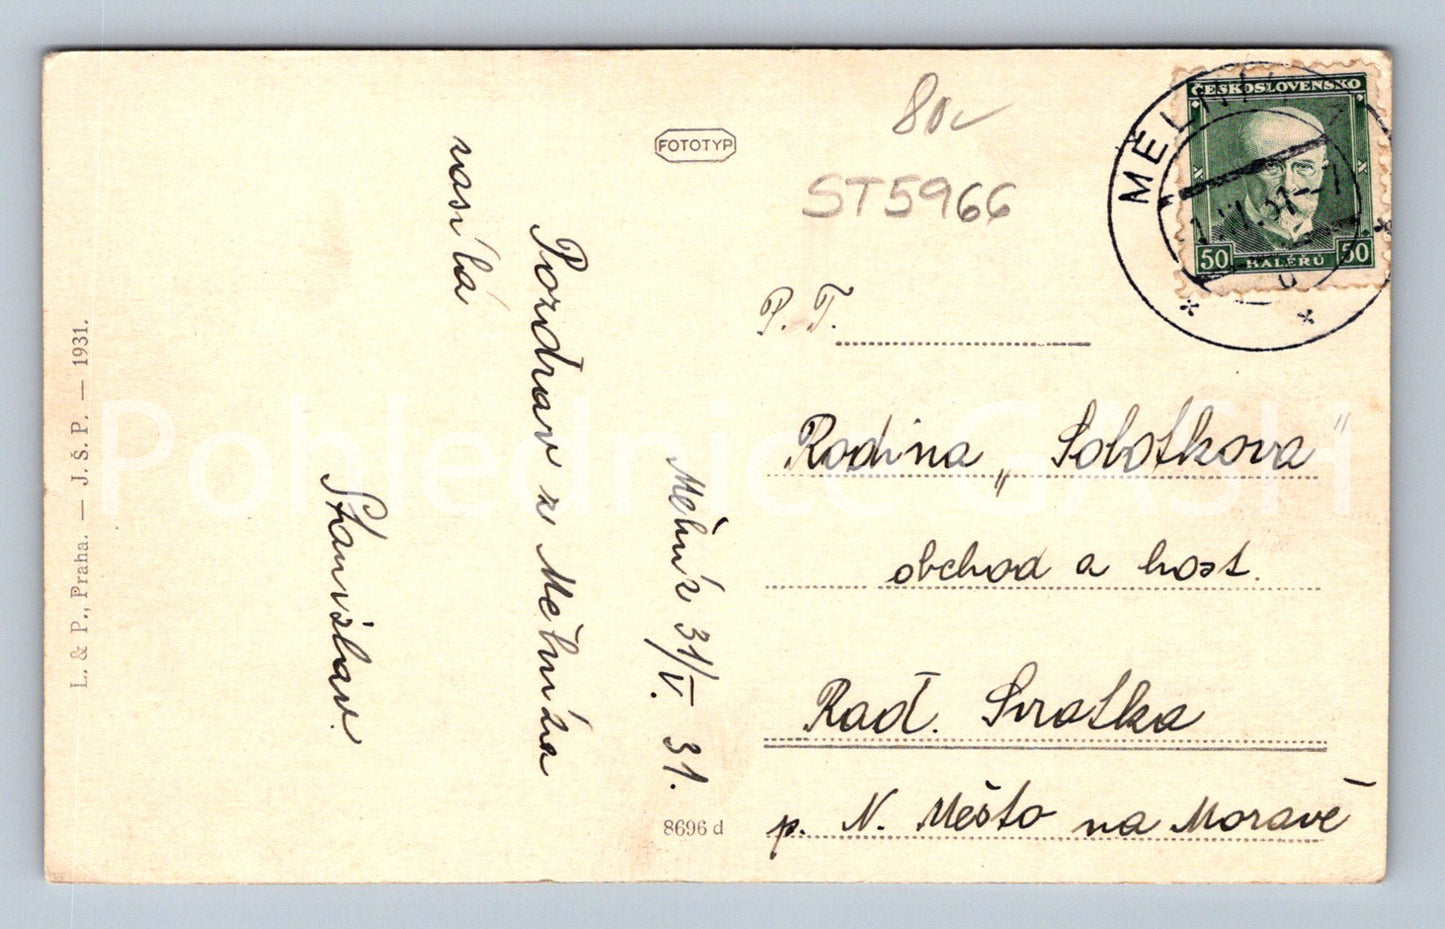 L. & P., Praha. — J. Š. P. — 1931.
Mělník 31/V. 31.
Pozdrav z Mělníka
zasílá
Stanislav.
FOTOTYP
8696 d
80,-
ST5966
ČESKOSLOVENSKO
50 HALÉŘŮ 50
MĚLNÍK
P. T.
Rodina „Sobotkova“
obchod a host.
Rad. Svratka
p. N. Město na Moravě
Pohlednice GASH